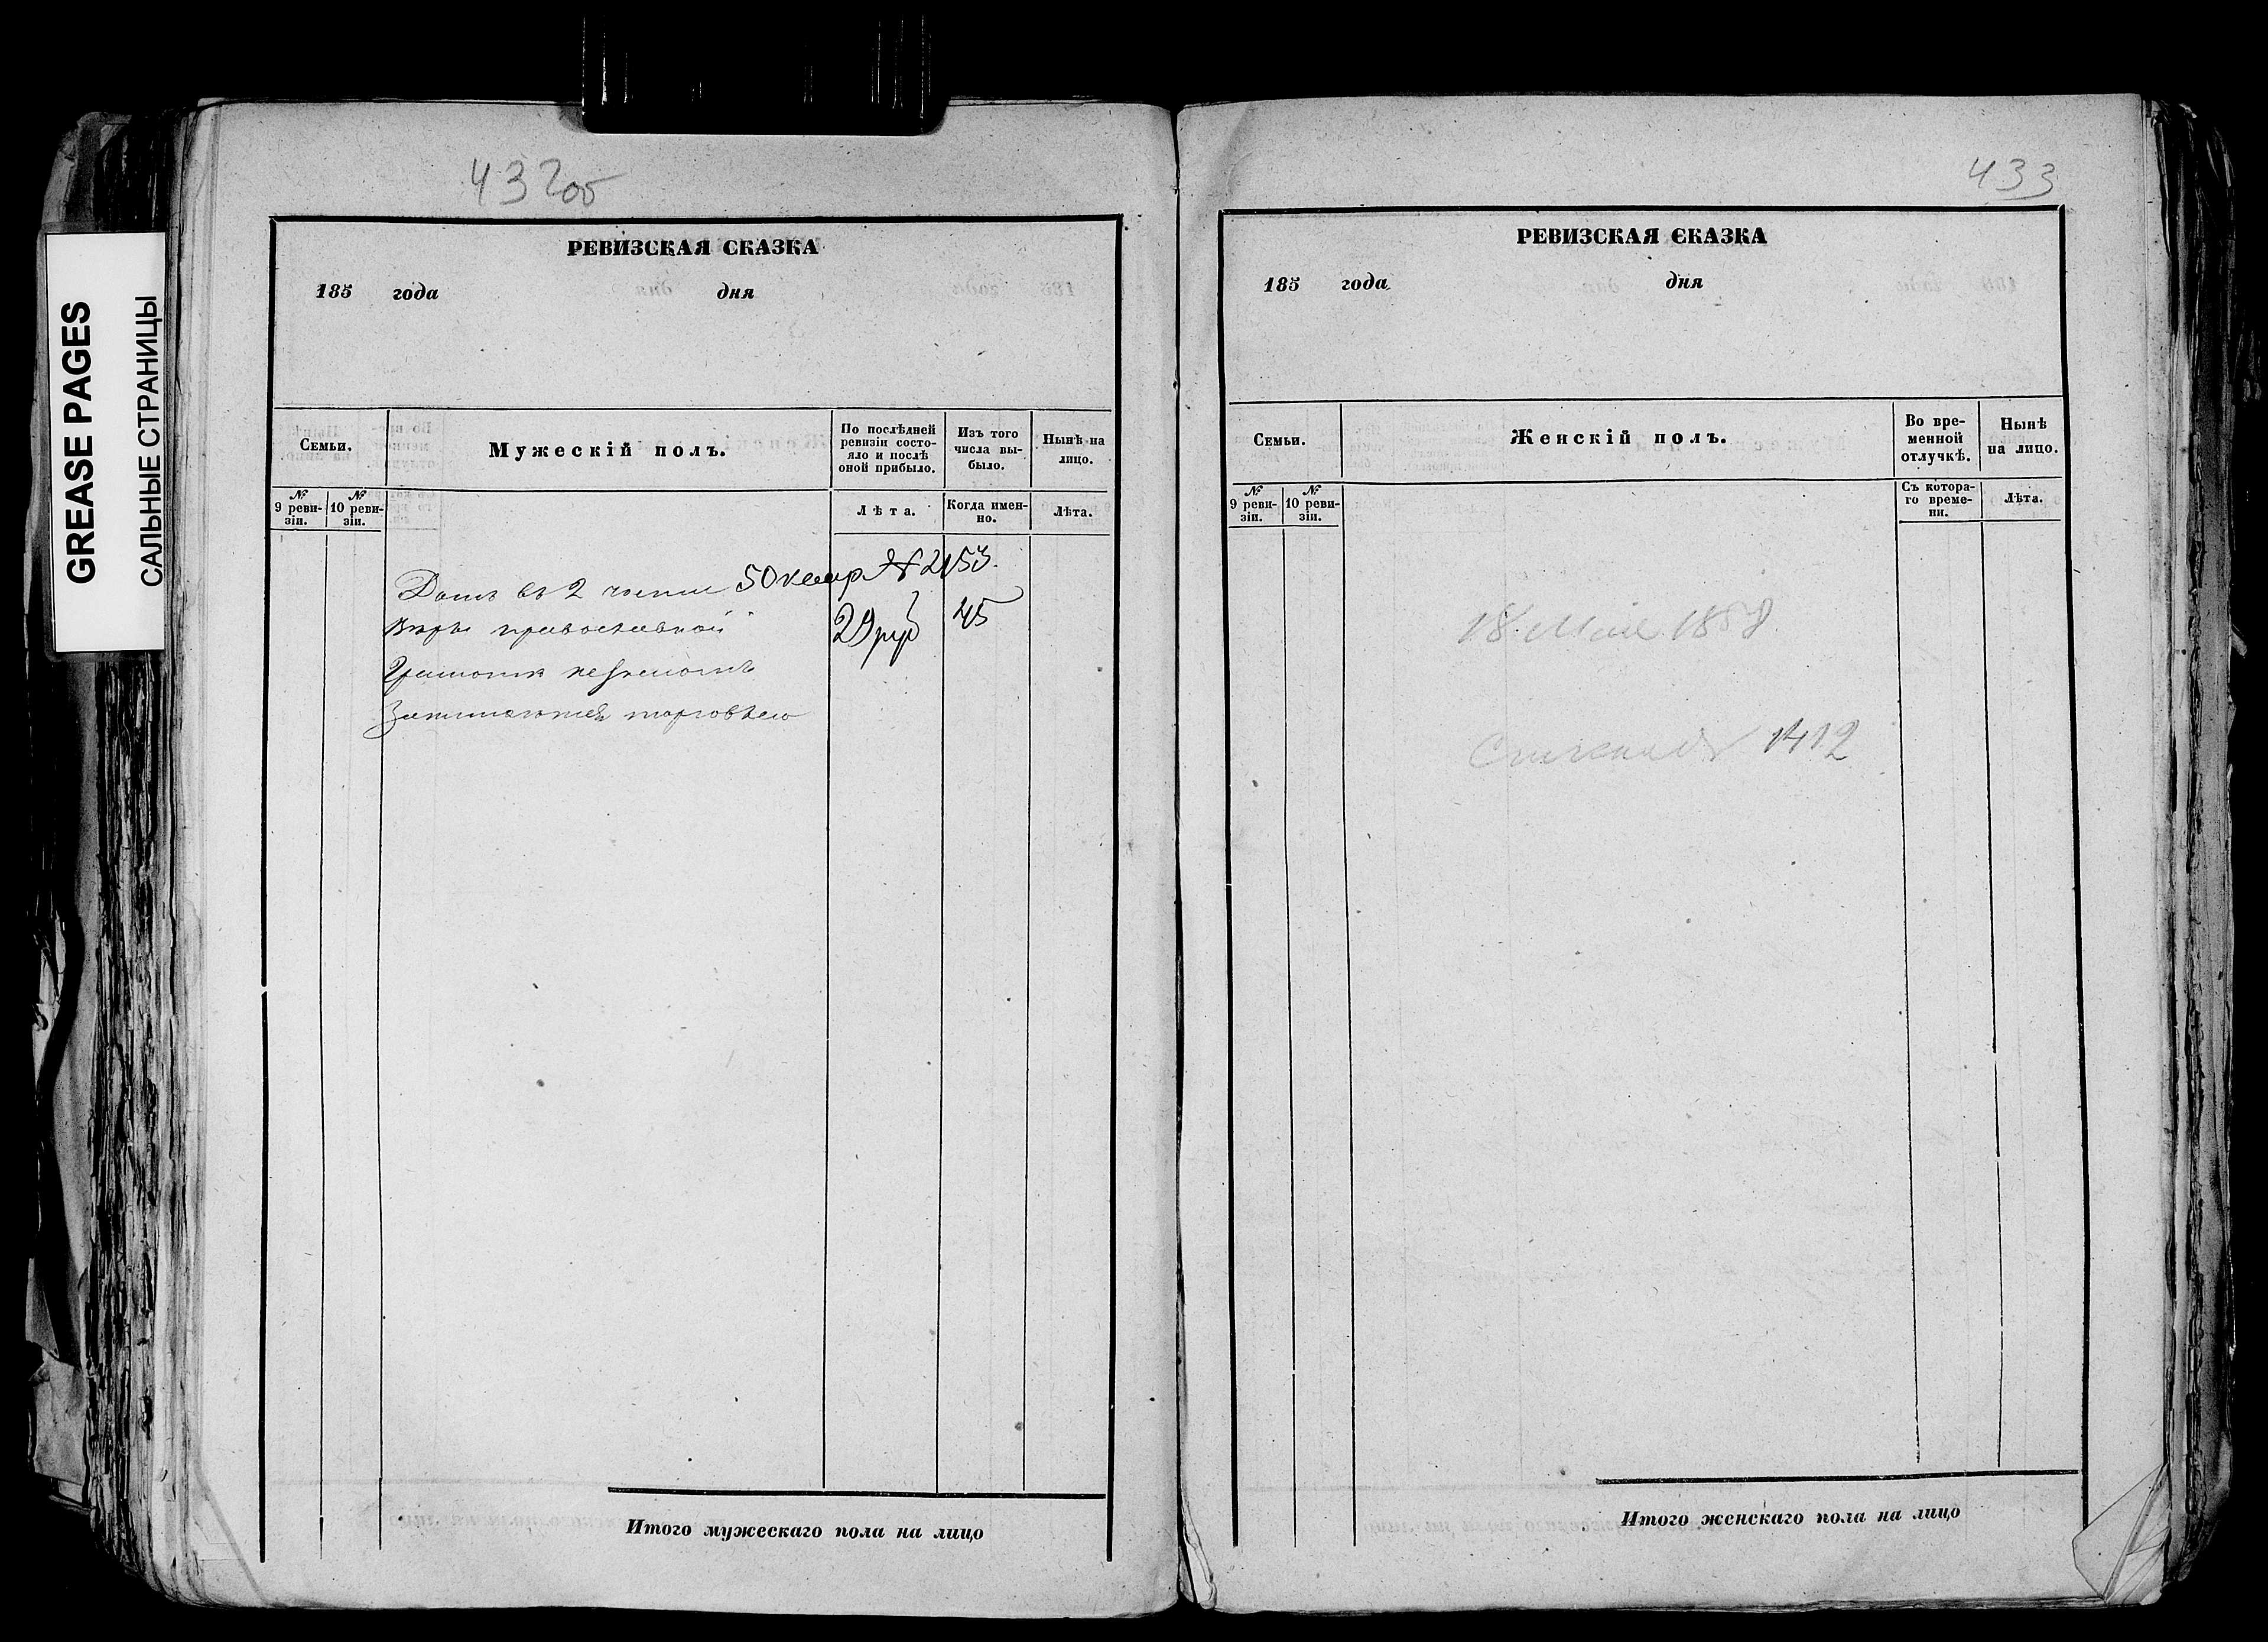 GREASE PAGES
САЛЬНЫЕ СТРАНИЦЫ
432об
РЕВИЗСКАЯ СКАЗКА
185 года дня
Семьи.
Мужескій полъ.
По послѣдней
ревизіи состо-
яло и послѣ
оной прибыло.
Изъ того
числа вы-
было.
Нынѣ на
лицо.
№
9 реви-
зіи.
№
10 реви-
зіи.
Лѣта.
Когда имен-
но.
Лѣта.
Домъ въ 2 части 50 квар № 2153
вѣры православной 29 руб 45
Грамотѣ незнаютъ
Занимаются торговлею
Итого мужескаго пола на лицо
433
РЕВИЗСКАЯ СКАЗКА
185 года дня
Семьи.
Женскій полъ.
Во вре-
менной
отлучкѣ.
Нынѣ
на лицо.
№
9 реви-
зіи.
№
10 реви-
зіи.
Съ котора-
го време-
ни.
Лѣта.
18 Мая 1858
1412
Итого женскаго пола на лицо